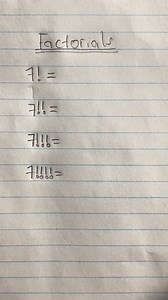 Factorials
7! =
7!! =
7!!! =
7!!!! =